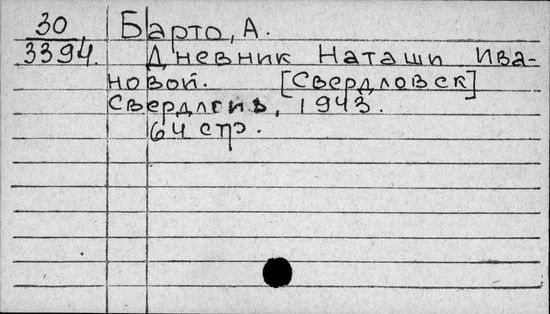 30 Барто, А.
3394. Дневник Наташи Ива-
новой. [Свердловск]
Свердлгиз, 1943.
64 стр.